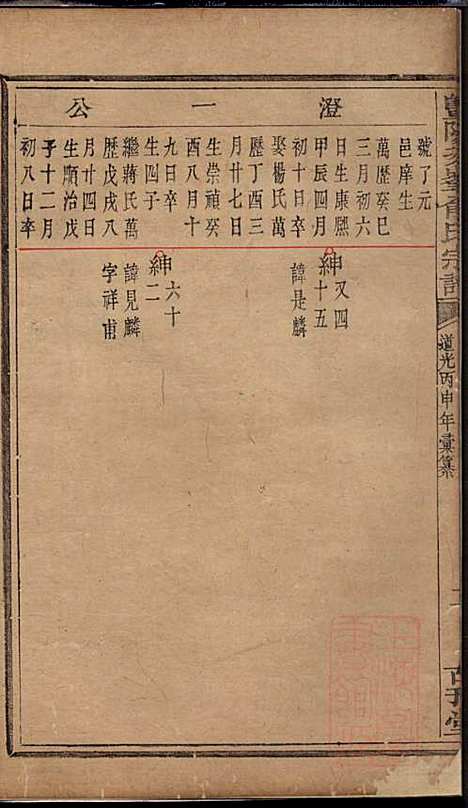 澄一公
號了元
邑庠生
萬歷癸巳
三月初六
日生康熙
甲辰四月
初十日卒
娶楊氏萬
歷丁酉三
月廿七日
生崇禎癸
酉八月十
九日卒
生四子
繼蔣氏萬
歷戊戌八
月廿四日
生順治戊
子十二月
初八日卒
紳又四
十五
諱是麟
紳六十
二
諱見麟
字祥甫
氏宗譜
道光丙申年彙纂